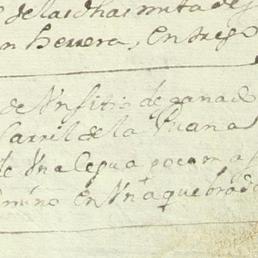 de las dhas mitades
n herrera, entrego
de Un sitio de ganado
Carril de la Juana
de Una legua poco m as
mino en Una quebrada